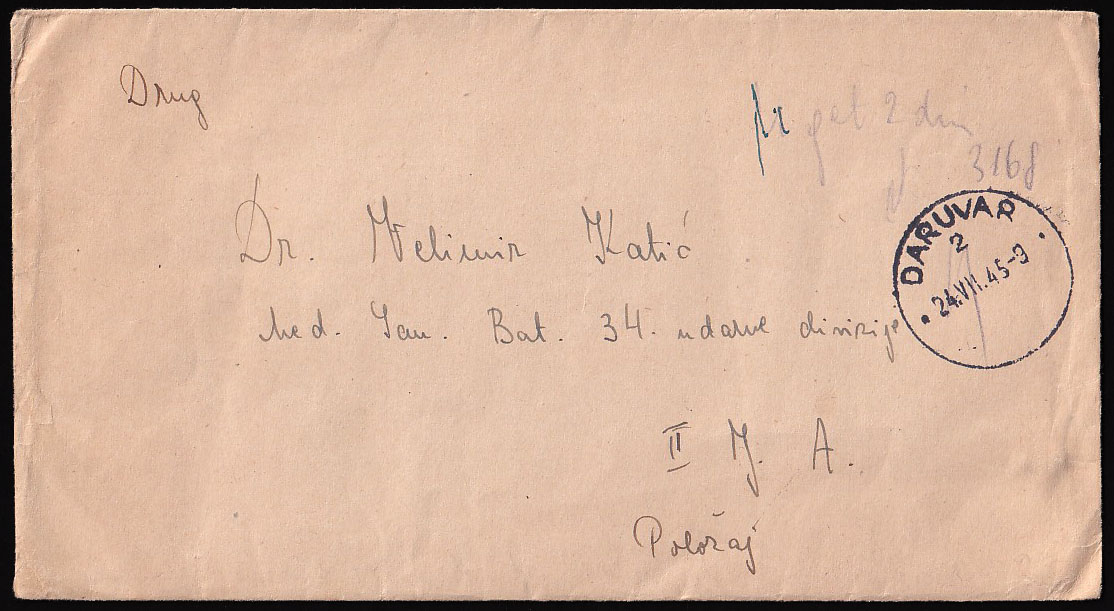 Drug
2 dni
3168
DARUVAR
2
24.VII.45-9
Dr. Velimir Katić
Med. San. Bat. 34. udarne divizije
II J. A.
Položaj